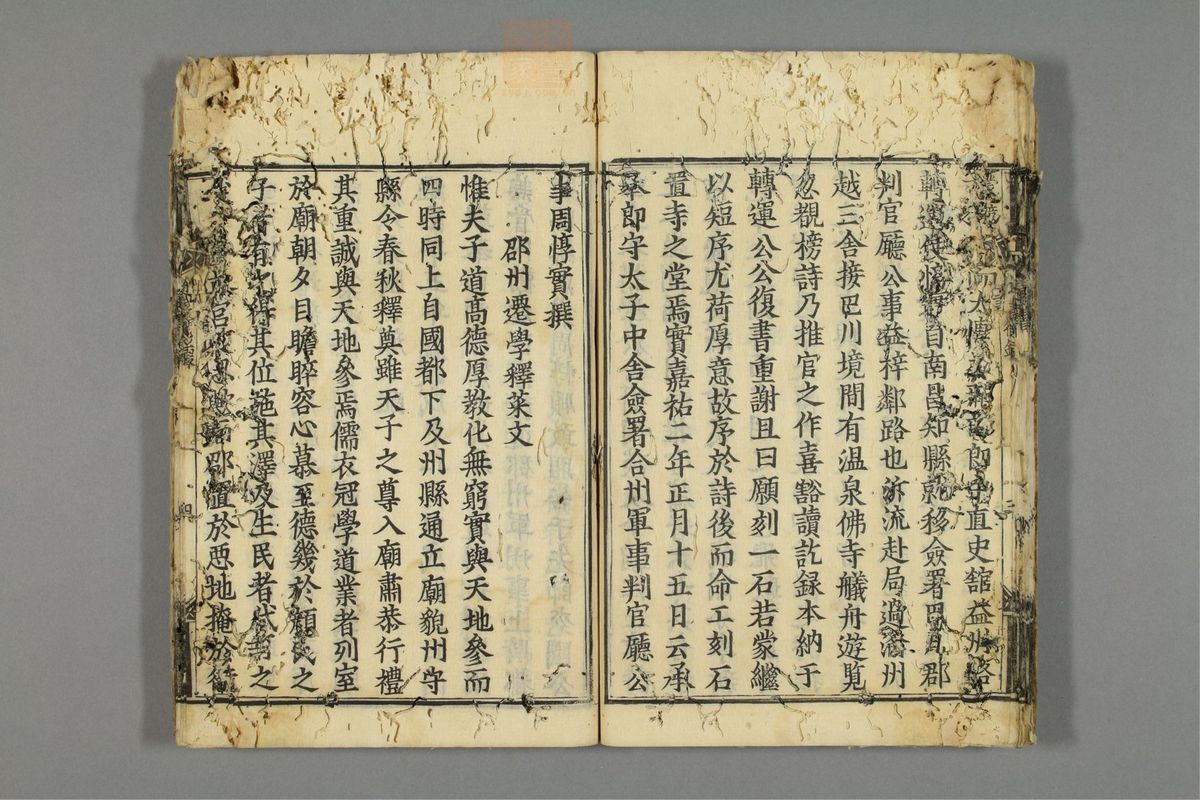 太傅 直史舘益州路
轉運使 自南昌知縣就移僉署巴川郡
判官廳公事益梓鄰路也泝流赴局過渝州
越三舍接巴川境間有温泉佛寺艤舟遊覧
忽覩榜詩乃推官之作喜豁讀訖録本納于
轉運公公復書重謝且曰願刻一石若蒙繼
以短序尤荷厚意故序於詩後而命工刻石
置寺之堂焉實嘉祐二年正月十五日云承
奉郎守太子中舍僉署合州軍事判官廳公
事周惇實撰
邵州遷學釋菜文
惟夫子道高德厚教化無窮實與天地參而
四時同上自國都下及州縣通立廟貌州守
縣令春秋釋奠雖天子之尊入廟肅恭行禮
其重誠與天地參焉儒衣冠學道業者列室
於廟朝夕目瞻睟容心慕至德幾於顔氏之
子者有之得其位施其澤及生民者代有之
邵置於惡地掩於
四